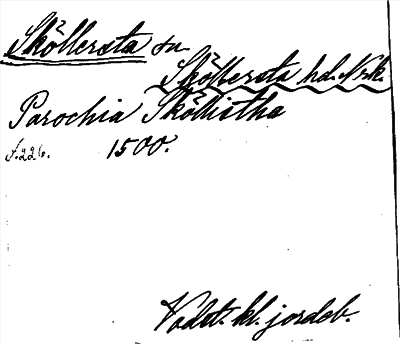 Sköllersta sn
Sköllersta hd. Nrk.
Parochia Sköllistha
f. 226. 1500.
Vadst. kl. jordeb.